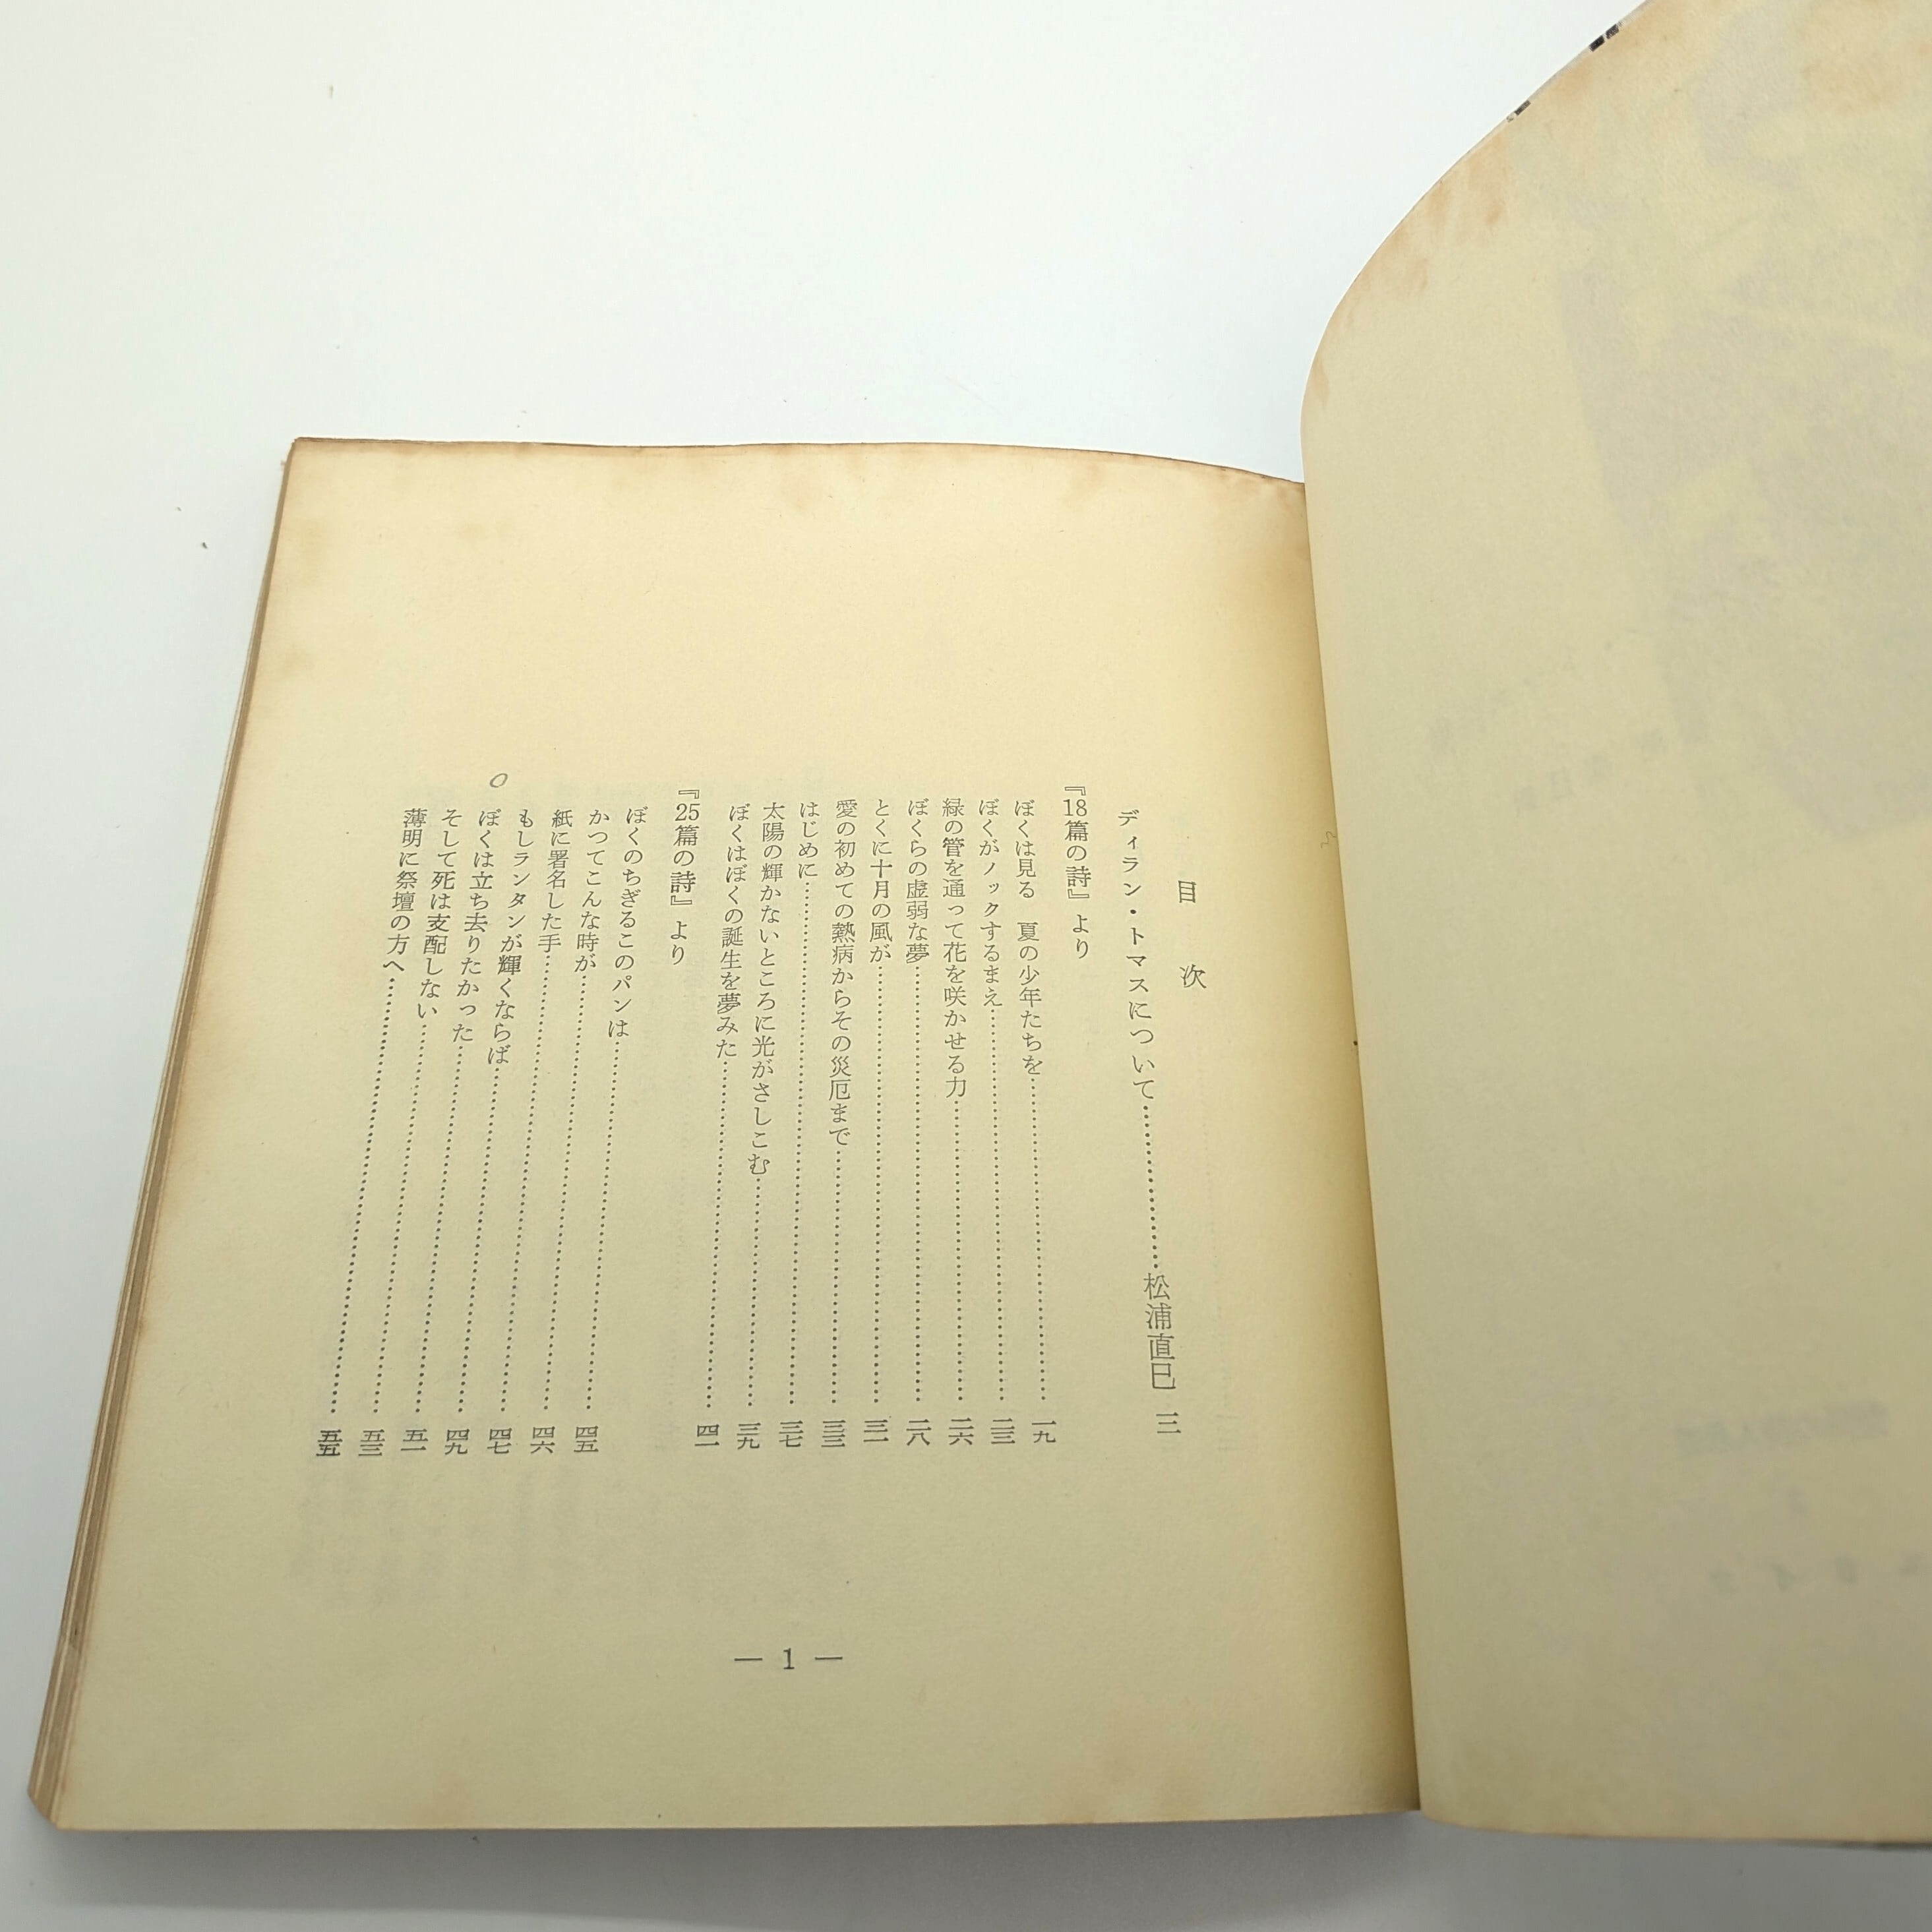 目次
ディラン・トマスについて……………松浦直巳 三
『18篇の詩』より
ぼくは見る 夏の少年たちを……………一九
ぼくがノックするまえ……………二三
緑の管を通って花を咲かせる力……………二六
ぼくらの虚弱な夢……………二八
とくに十月の風が……………三一
愛の初めての熱病からその災厄まで……………三三
はじめに……………三七
太陽の輝かないところに光がさしこむ……………三九
ぼくはぼくの誕生を夢みた……………四一
『25篇の詩』より
ぼくのちぎるこのパンは……………四五
かつてこんな時が……………四六
紙に署名した手……………四七
もしランタンが輝くならば……………四九
ぼくは立ち去りたかった……………五一
そして死は支配しない……………五三
薄明に祭壇の方へ……………五五
— 1 —